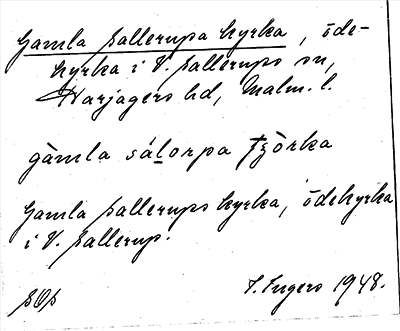 Gamla Sallerups kyrka, öde-
kyrka i V. Sallerups sn,
Harjagers hd, Malm. l.
gàmla sálorpa
Gamla Sallerups kyrka, ödekyrka
i V. Sallerup.
Ingers 1948.